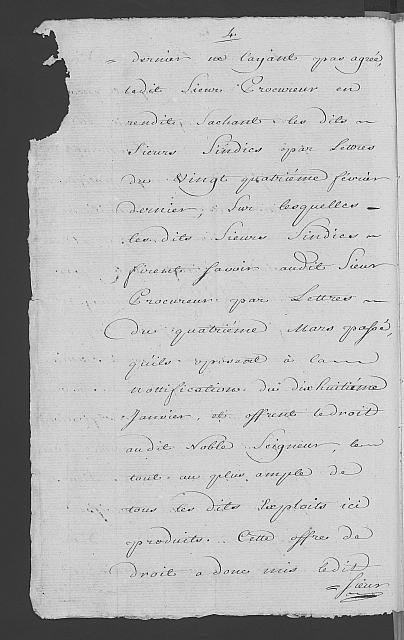 4.
= dernier ne l'ayant pas agréé,
ledit Sieur Procureur en
rendit Sachant les dits ~
Sieurs Sindics par Lettres
du Vingt quatriéme février
dernier, Sur lesquelles =
les dits Sieurs Sindics ~
firent Savoir audit Sieur
Procureur par Lettres ~
du quatriéme Mars passé,
qu'ils oposent à la ~
nottification du dixhuitiéme
Janvier, et offrent le droit
audit Noble Seigneur, le
tout au plus ample de
tous les dits Exploits ici
produits. Cette offres de
droit a donc mis ledit
= Sieur